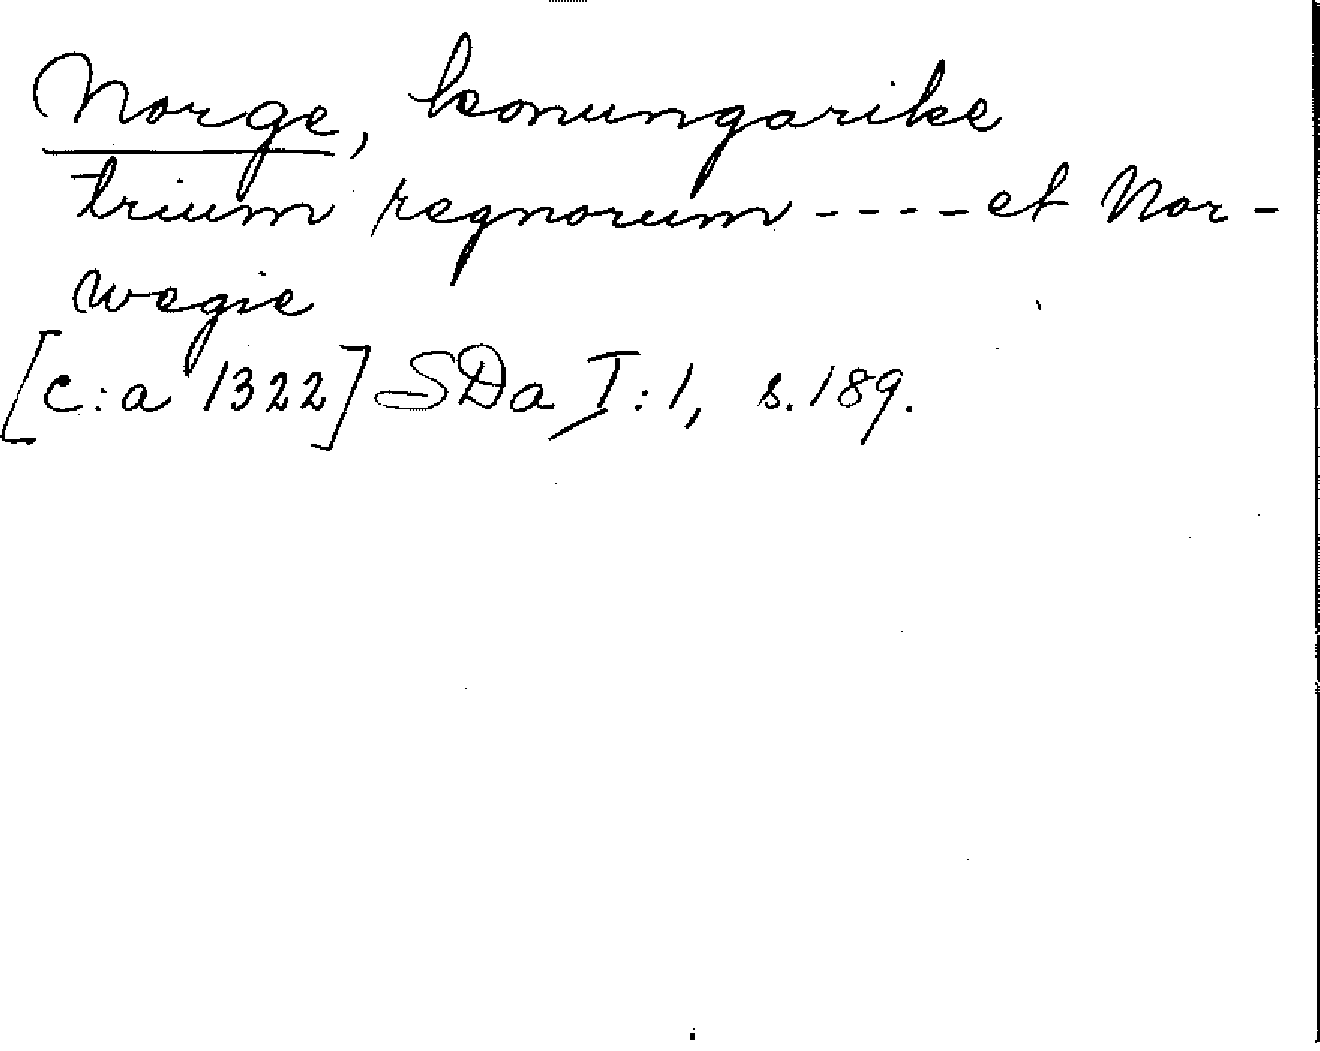 Norge, konungarike
trium regnorum ----et Nor-
wegie
[c:a 1322] SDa I:1, s. 189.